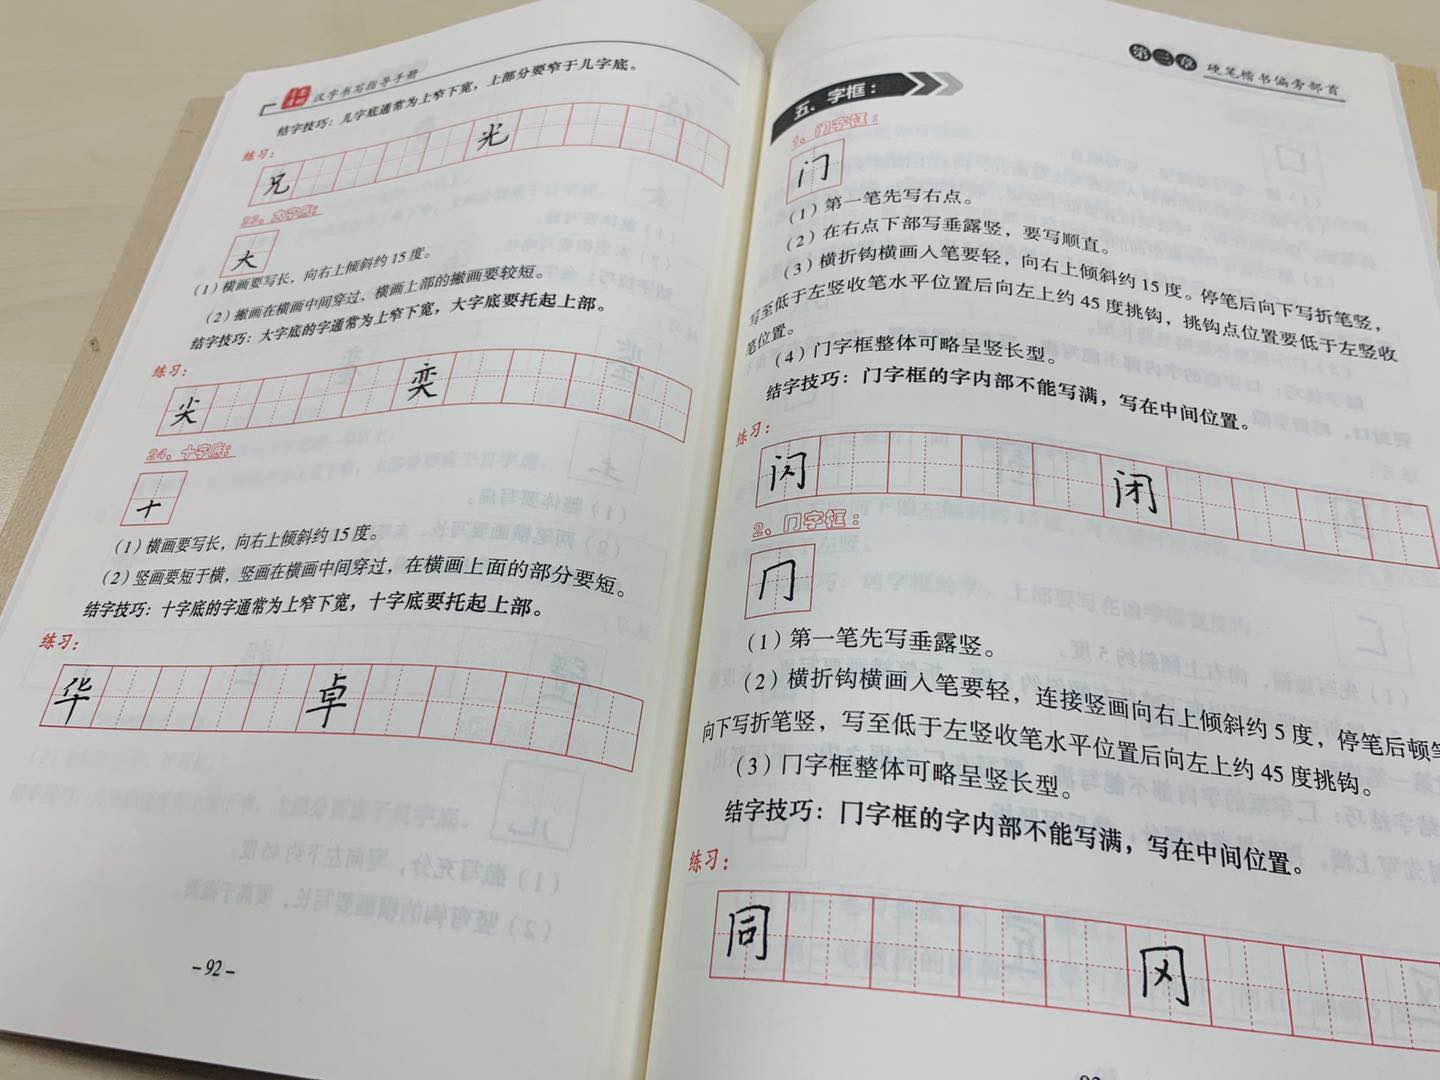 汉字书写指导手册
结字技巧：几字底通常为上窄下宽，上部分要窄于几字底。
练习：
兄 光
23、大字底：
大
（1）横画要写长，向右上倾斜约15度。
（2）撇画在横画中间穿过，横画上部的撇画要较短。
结字技巧：大字底的字通常为上窄下宽，大字底要托起上部。
练习：
尖 奕
24、十字底：
十
（1）横画要写长，向右上倾斜约15度。
（2）竖画要短于横，竖画在横画中间穿过，在横画上面的部分要短。
结字技巧：十字底的字通常为上窄下宽，十字底要托起上部。
练习：
华 卓
-92-
第三章 硬笔楷书偏旁部首
五、字框：
1、门字框：
门
（1）第一笔先写右点。
（2）在右点下部写垂露竖，要写顺直。
（3）横折钩横画入笔要轻，向右上倾斜约15度。停笔后向下写折笔竖，
写至低于左竖收笔水平位置后向左上约45度挑钩，挑钩点位置要低于左竖收
笔位置。
（4）门字框整体可略呈竖长型。
结字技巧：门字框的字内部不能写满，写在中间位置。
练习：
闪 闭
2、冂字框：
冂
（1）第一笔先写垂露竖。
（2）横折钩横画入笔要轻，连接竖画向右上倾斜约5度，停笔后顿笔
向下写折笔竖，写至低于左竖收笔水平位置后向左上约45度挑钩。
（3）冂字框整体可略呈竖长型。
结字技巧：冂字框的字内部不能写满，写在中间位置。
练习：
同 冈